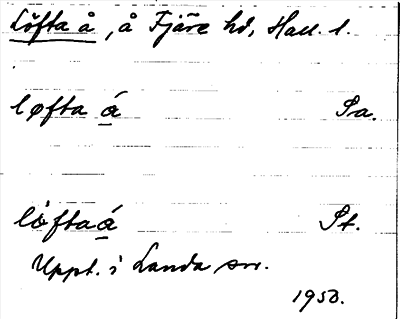 Löfta å, å Fjäre hd, Hall. l.
løfta á Sa.
lo̍fta á St.
Uppt. i Landa sn.
1953.